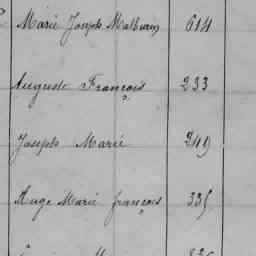 Marie Joseph Mathurin 614
Auguste François 233
Joseph Marie 249
Ange Marie françois 335